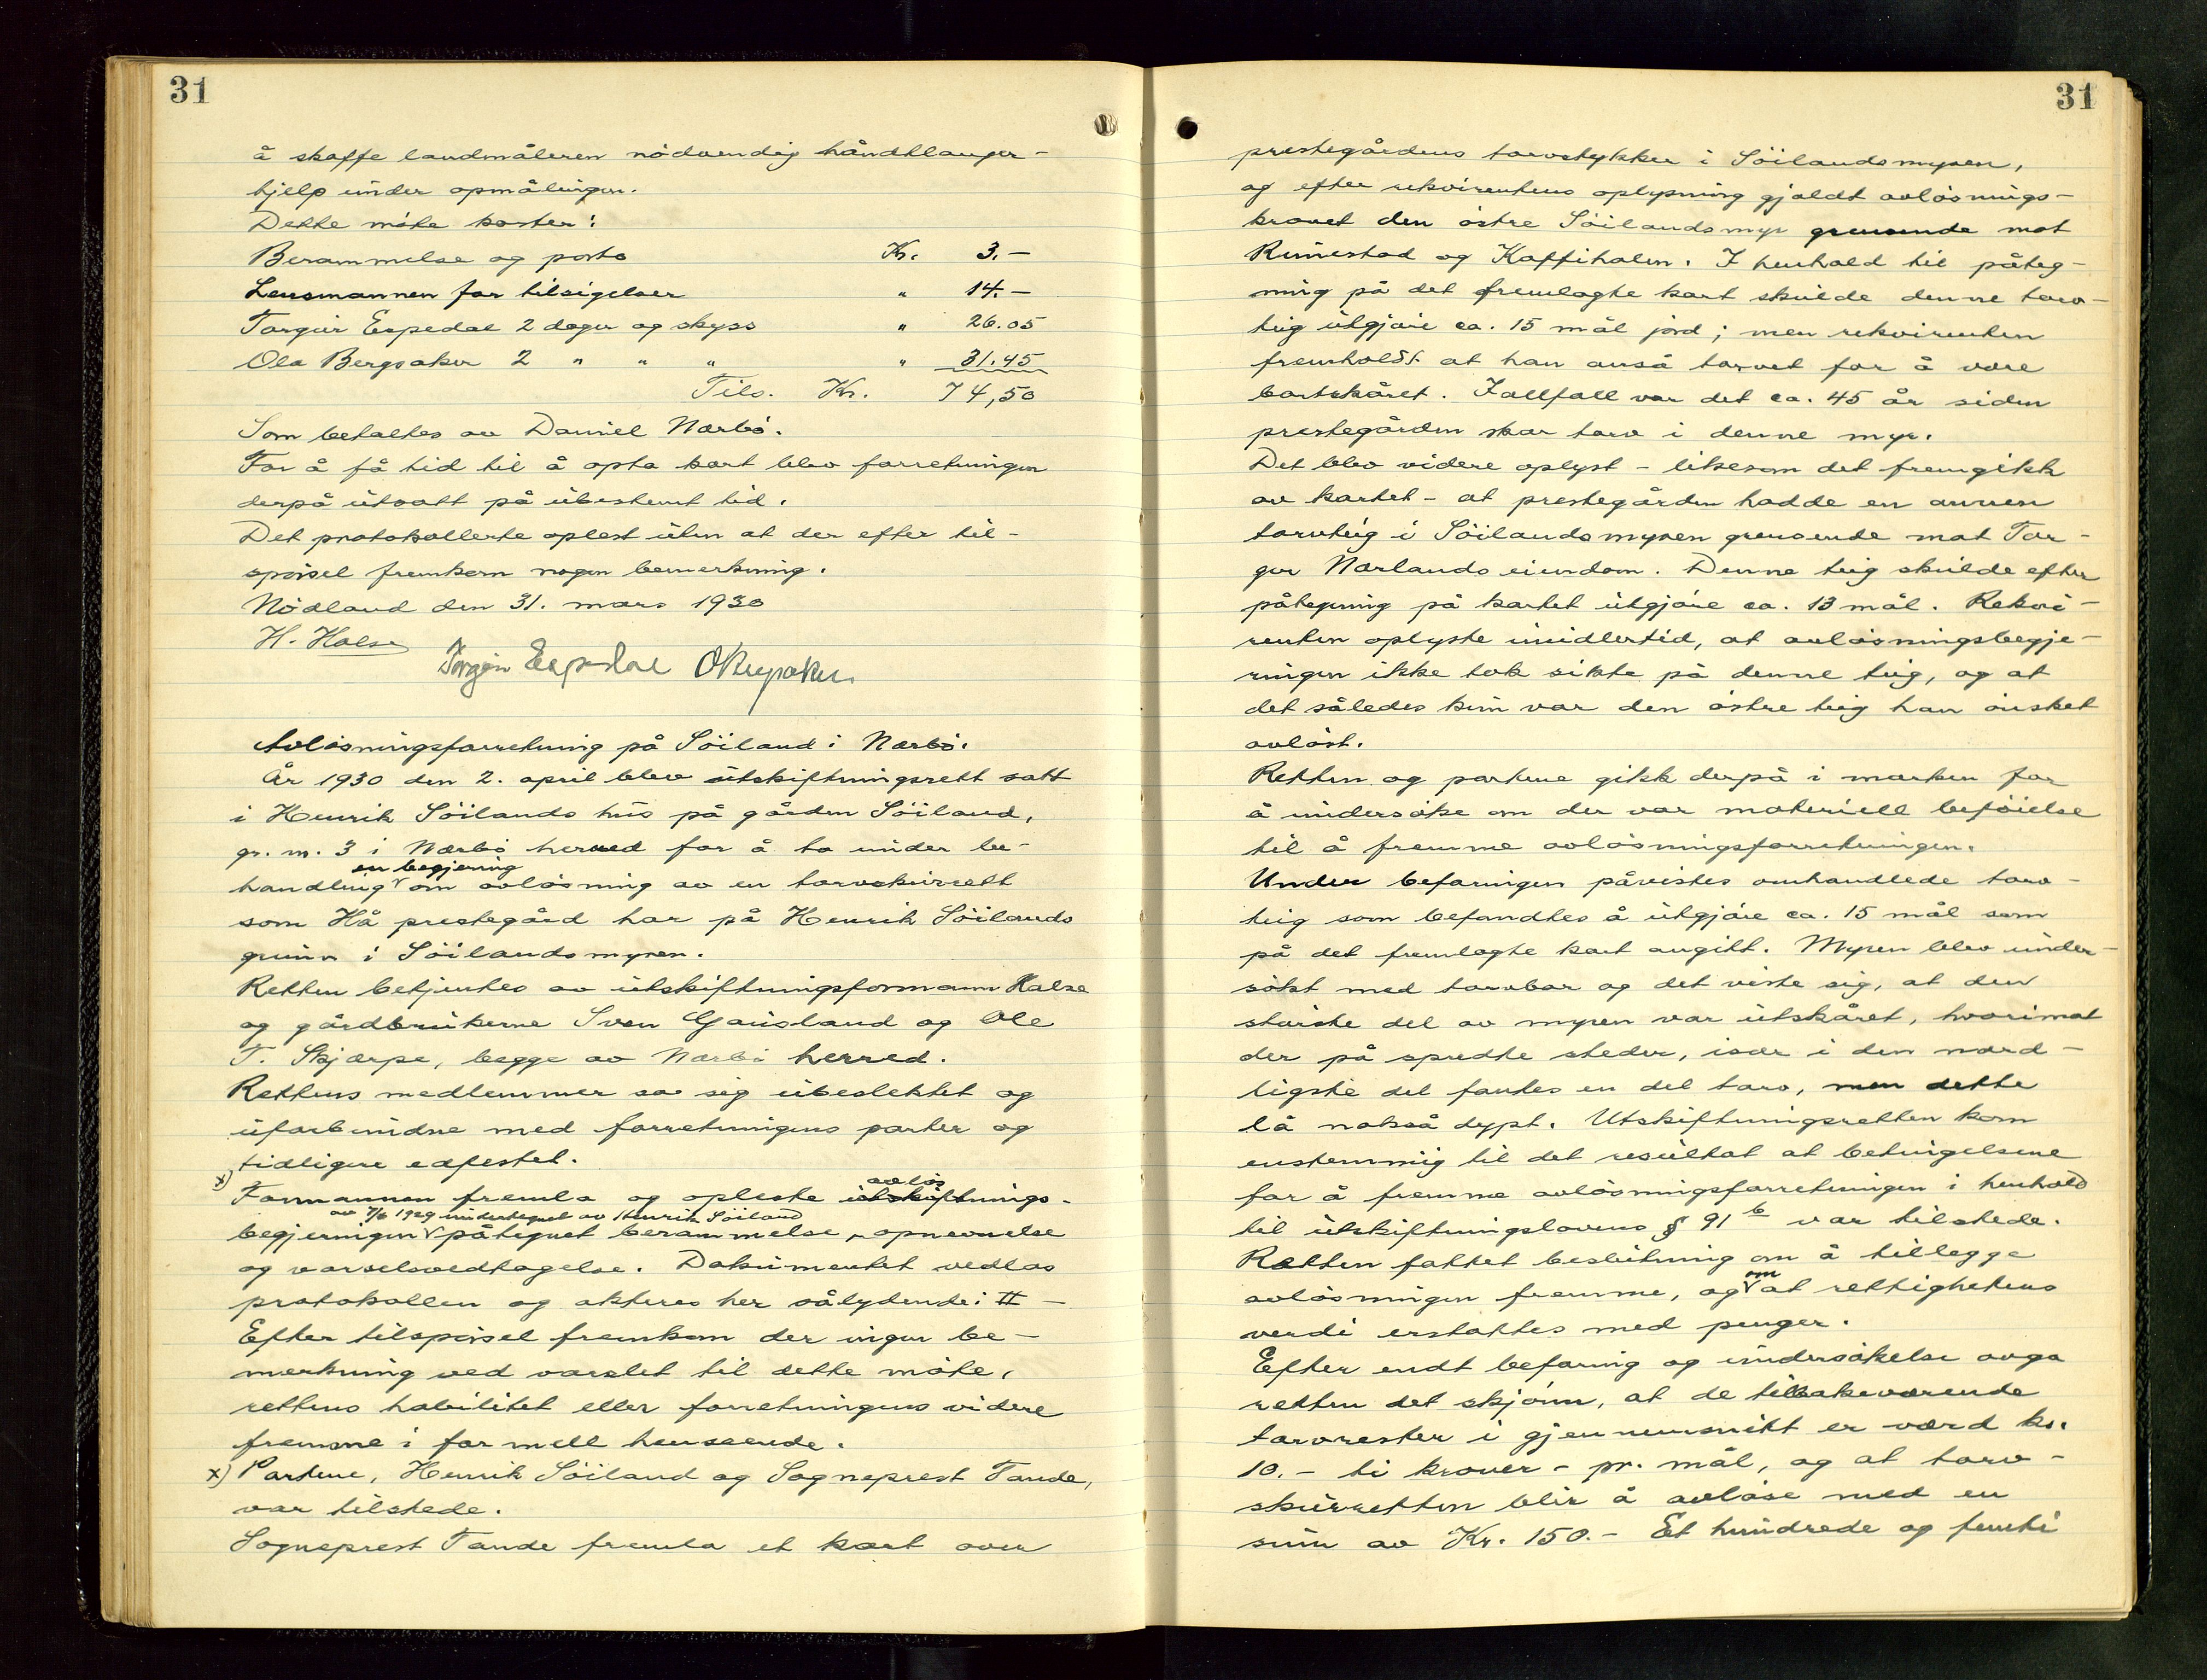 31
å skaffe landmåleren nödvendig håndtlanger-
hjelp under opmålingen.
Dette möte koster:
Berammelse og porto Kr. 3.-
Lensmannen for tilsigelser " 14.-
Torgeir Espedal 2 dager og skyss " 26.05
Ola Bergsaker 2 " " " " 31.45
Tils. Kr. 74,50
Som betaltes av Daniel Nærbö.
For å få tid til å opta kart blev forretningen
derpå utsatt på ubestemt tid.
Det protokollerte oplest uten at der efter til-
spörsel fremkom nogen bemerkning.
Nödland den 31. mars 1930
H. Halse
Torgeir Espedal
Avlösningsforretning på Söiland i Nærbö.
År 1930 den 2. april blev utskiftningsrett satt
i Henrik Söilands hus på gården Söiland,
gr. nr. 3 i Nærbö herred for å ta under be-
en begjæring
handling om avlösning av en torvskurrett
som Hå prestegård har på Henrik Söilands
grunn i Söilandsmyren.
Retten betjentes av utskiftningsformann Halse
og gårdbrukerne Sven Gausland og Ole
T. Skjærpe, begge av Nærbö herred.
Rettens medlemmer sa sig ubeslektet og
uforbundne med forretningens parter og
tidligere edfestet.
x)
avlös
Formannen fremla og opleste utskiftnings-
av 7/6 1929 undertegnet av Henrik Söiland
begjeringen påtegnet berammelse, opnevnelse
og varselsvedtagelse. Dokumentet vedlas
protokollen og akteres her sålydende: II -
Efter tilspörsel fremkom der ingen be-
merkning ved varslet til dette möte,
rettens habilitet eller forretningens videre
fremme i formell henseende.
x) Partene, Henrik Söiland og Sogneprest Tande,
var tilstede.
Sogneprest Tande fremla et kart over
31
prestegårdens torvstykker i Söilandsmyren,
og efter rekvirentens oplysning gjaldt avlösnings-
kravet den östre Söilandsmyr grensende mot
Runestad og Kaffihalen. I henhold til påteg-
ning på det fremlagte kart skulde denne torv-
teig utgjöre ca. 15 mål jord; men rekvirenten
fremholdt at han anså torvet for å være
bortskåret. Iallfall var det ca. 45 år siden
prestegården skar torv i denne myr.
Det blev videre oplyst - likesom det fremgikk
av kartet - at prestegården hadde en annen
torvteig i Söilandsmyren grensende mot Tor-
ger Nærlands eiendom. Denne teig skulde efter
påtegning på kartet utgjöre ca. 13 mål. Rekvi-
renten oplyste imidlertid, at avlösningsbegje-
ringen ikke tok sikte på denne teig, og at
det således kun var den östre teig han önsket
avlöst.
Retten og partene gikk derpå i marken for
å undersöke om der var materiell beföielse
til å fremme avlösningsforretningen.
Under befaringen påvistes omhandlede torv-
teig som befandtes å utgjöre ca. 15 mål som
på det fremlagte kart angitt. Myren blev under-
sökt med torvbor og det viste sig, at den
störste del av myren var utskåret, hvorimot
der på spredte steder, især i den nord-
ligste del fantes en del torv, men dette
lå nokså dypt. Utskiftningsretten kom
enstemmig til det resultat at betingelsene
for å fremme avlösningsforretningen i henhold
til utskiftningslovens § 91 b var tilstede.
Retten fattet beslutning om å tillegge
om
avlösningen fremme, og at rettighetens
verdi erstattes med penger.
Efter endt befaring og undersökelse avga
retten det skjönn, at de tilbakeværende
torvrester i gjennemsnitt er værd kr.
10.- ti kroner - pr. mål, og at torv-
skurretten blir å avlöse med en
sum av Kr. 150.- Et hundrede og femti